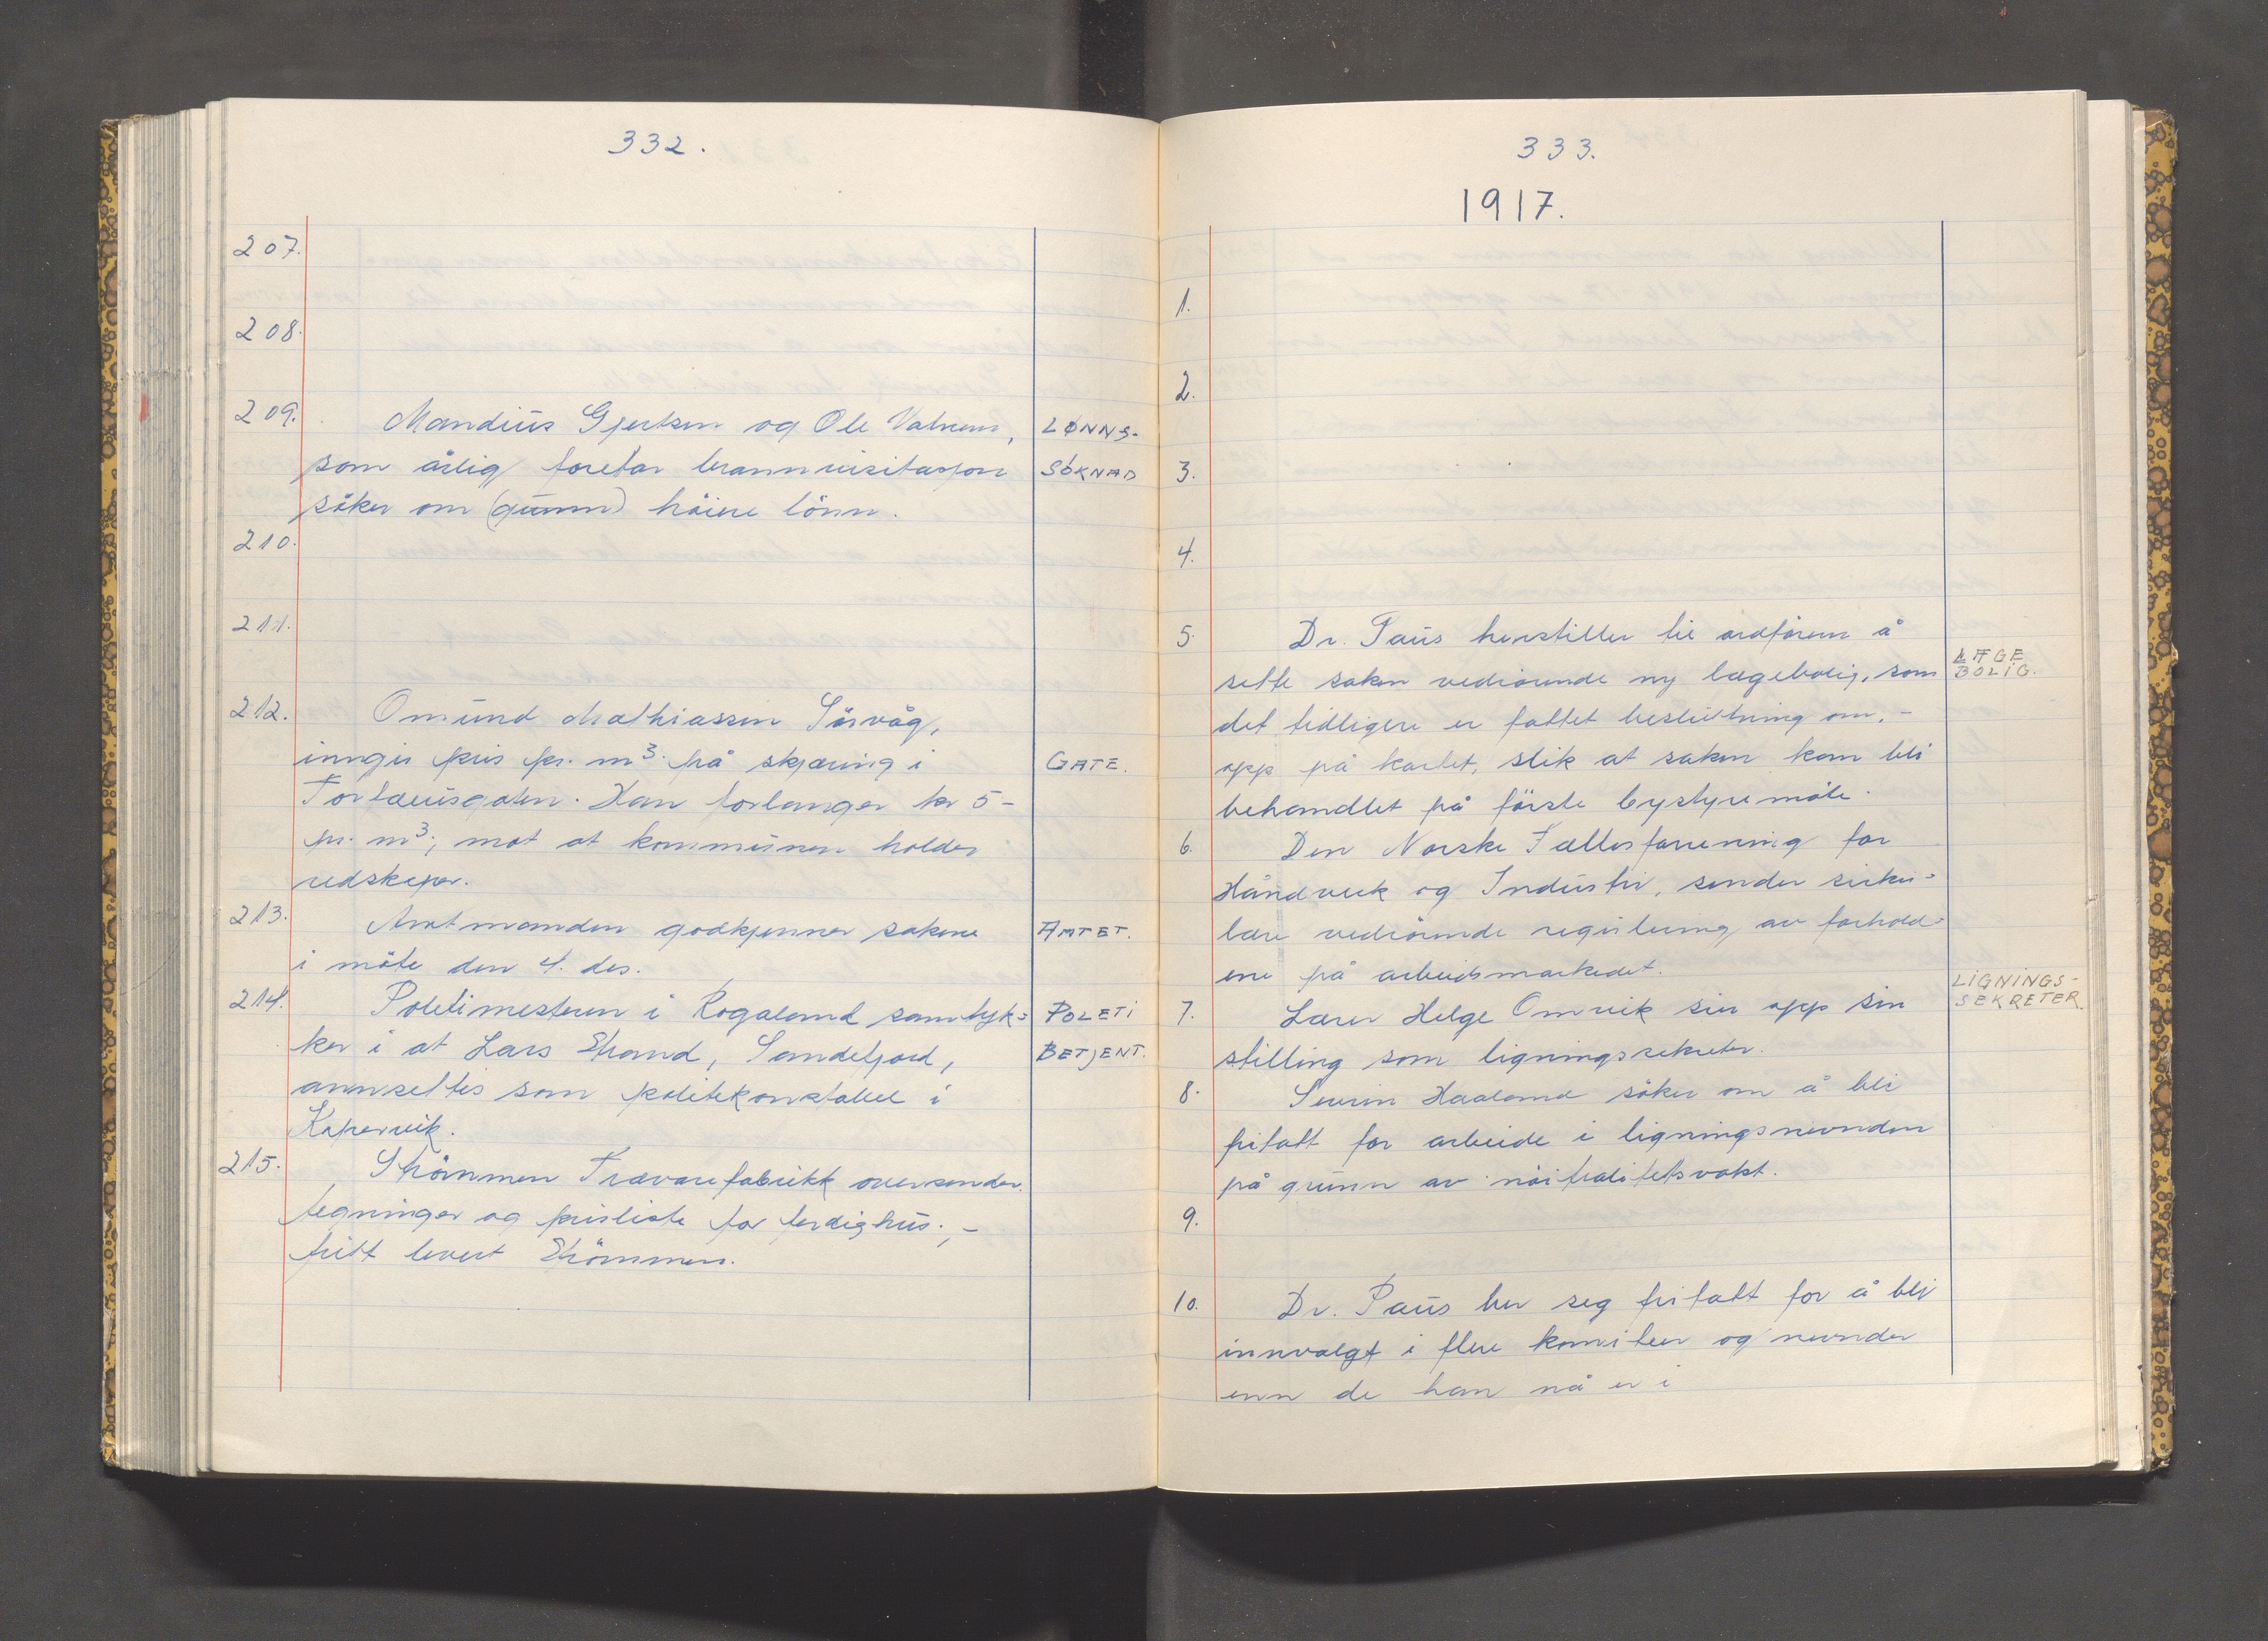 332.
207.
208.
209. Mandius Gjertsen og Ole Valnum, LØNNS-
som årlig foretar brannvisitasjon SÖKNAD
söker om (gunn) höiere lönn.
210.
211.
212. Omund Mathiassen Sörvåg,
inngir pris pr. m³. på skjæring i GATE.
Torfæusgaten. Han forlanger kr 5-
pr. m³; mot at kommunen holder
redskaper.
213. Amtmanden godkjenner sakene AMTET.
i möte den 4. des.
214. Politimesteren i Rogaland samtyk= POLETI
ker i at Lars Strand, Sandefjord, BETJENT.
annsettes som politikonstabel i
Kopervik.
215. Strömmen Trævarefabrikk oversender
tegninger og prisliste for ferdighus.,-
fritt levert Strömmen.
333.
1917.
1.
2.
3.
4.
5. Dr. Paus henstiller til ordförern å
sette saken vedrörende ny lægebolig, som LÆGE BOLIG.
det tidligere er fattet beslutning om, -
opp på kartet, slik at saken kan bli
behandlet på förste bystyremöte.
6. Den Norske Fællesforening for
Håndverk og Industri, sender sirku=
lære vedrörende regulering av forhold=
ene på arbeidsmarkedet.
7. Lærer Helge Omvik sier opp sin LIGNINGS-SEKRETER.
stilling som ligningssekretær.
8. Severin Haaland söker om å bli
fritatt for arbeide i ligningsnevnden
på grunn av nöitralitetsvakt.
9.
10. Dr. Paus ber seg fritatt for å bli
innvalgt i flere komiteer og nevnder
enn de han nå er i